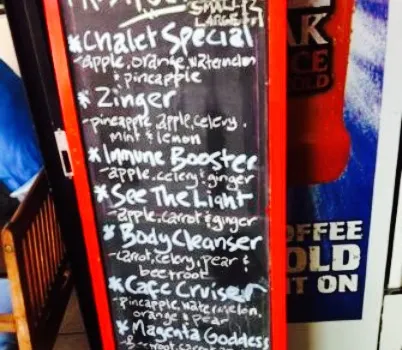 SMALL
LARGE
*Chalet Special
-apple, orange, watermelon
& pineapple
*Zinger
-pineapple, apple, celery,
mint & lemon
*Immune Booster
-apple, celery & ginger
*See The Light
-apple, carrot & ginger
*Body Cleanser
-carrot, celery, pear &
beetroot
*Cafe Cruiser
-pineapple, watermelon,
orange & pear
*Magenta Goddess
AK
CE
OLD
FFEE
OLD
IT ON